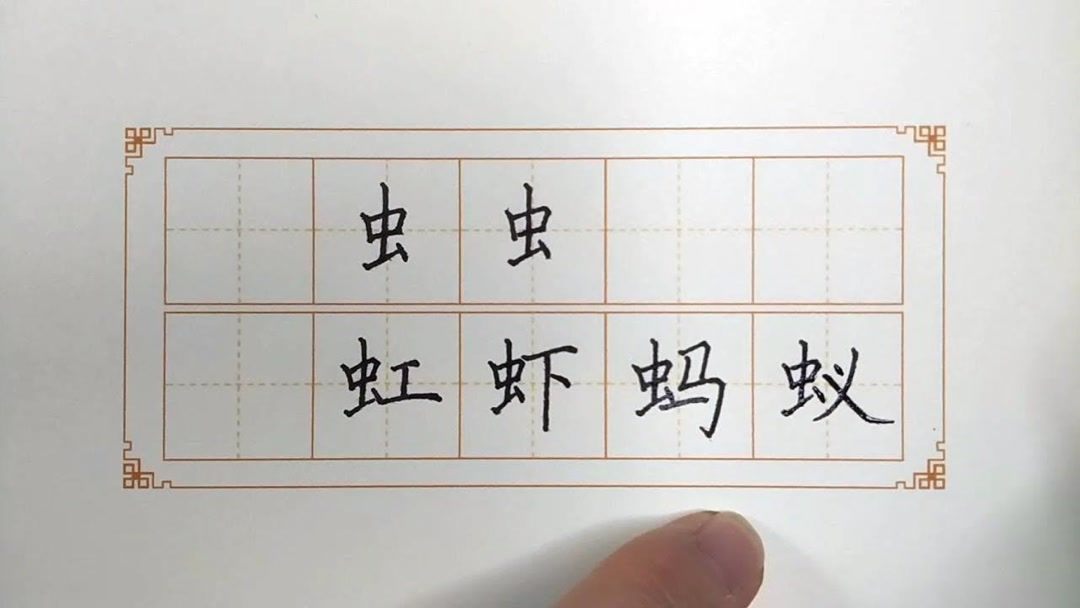 虫 虫
虹 虾 蚂 蚁